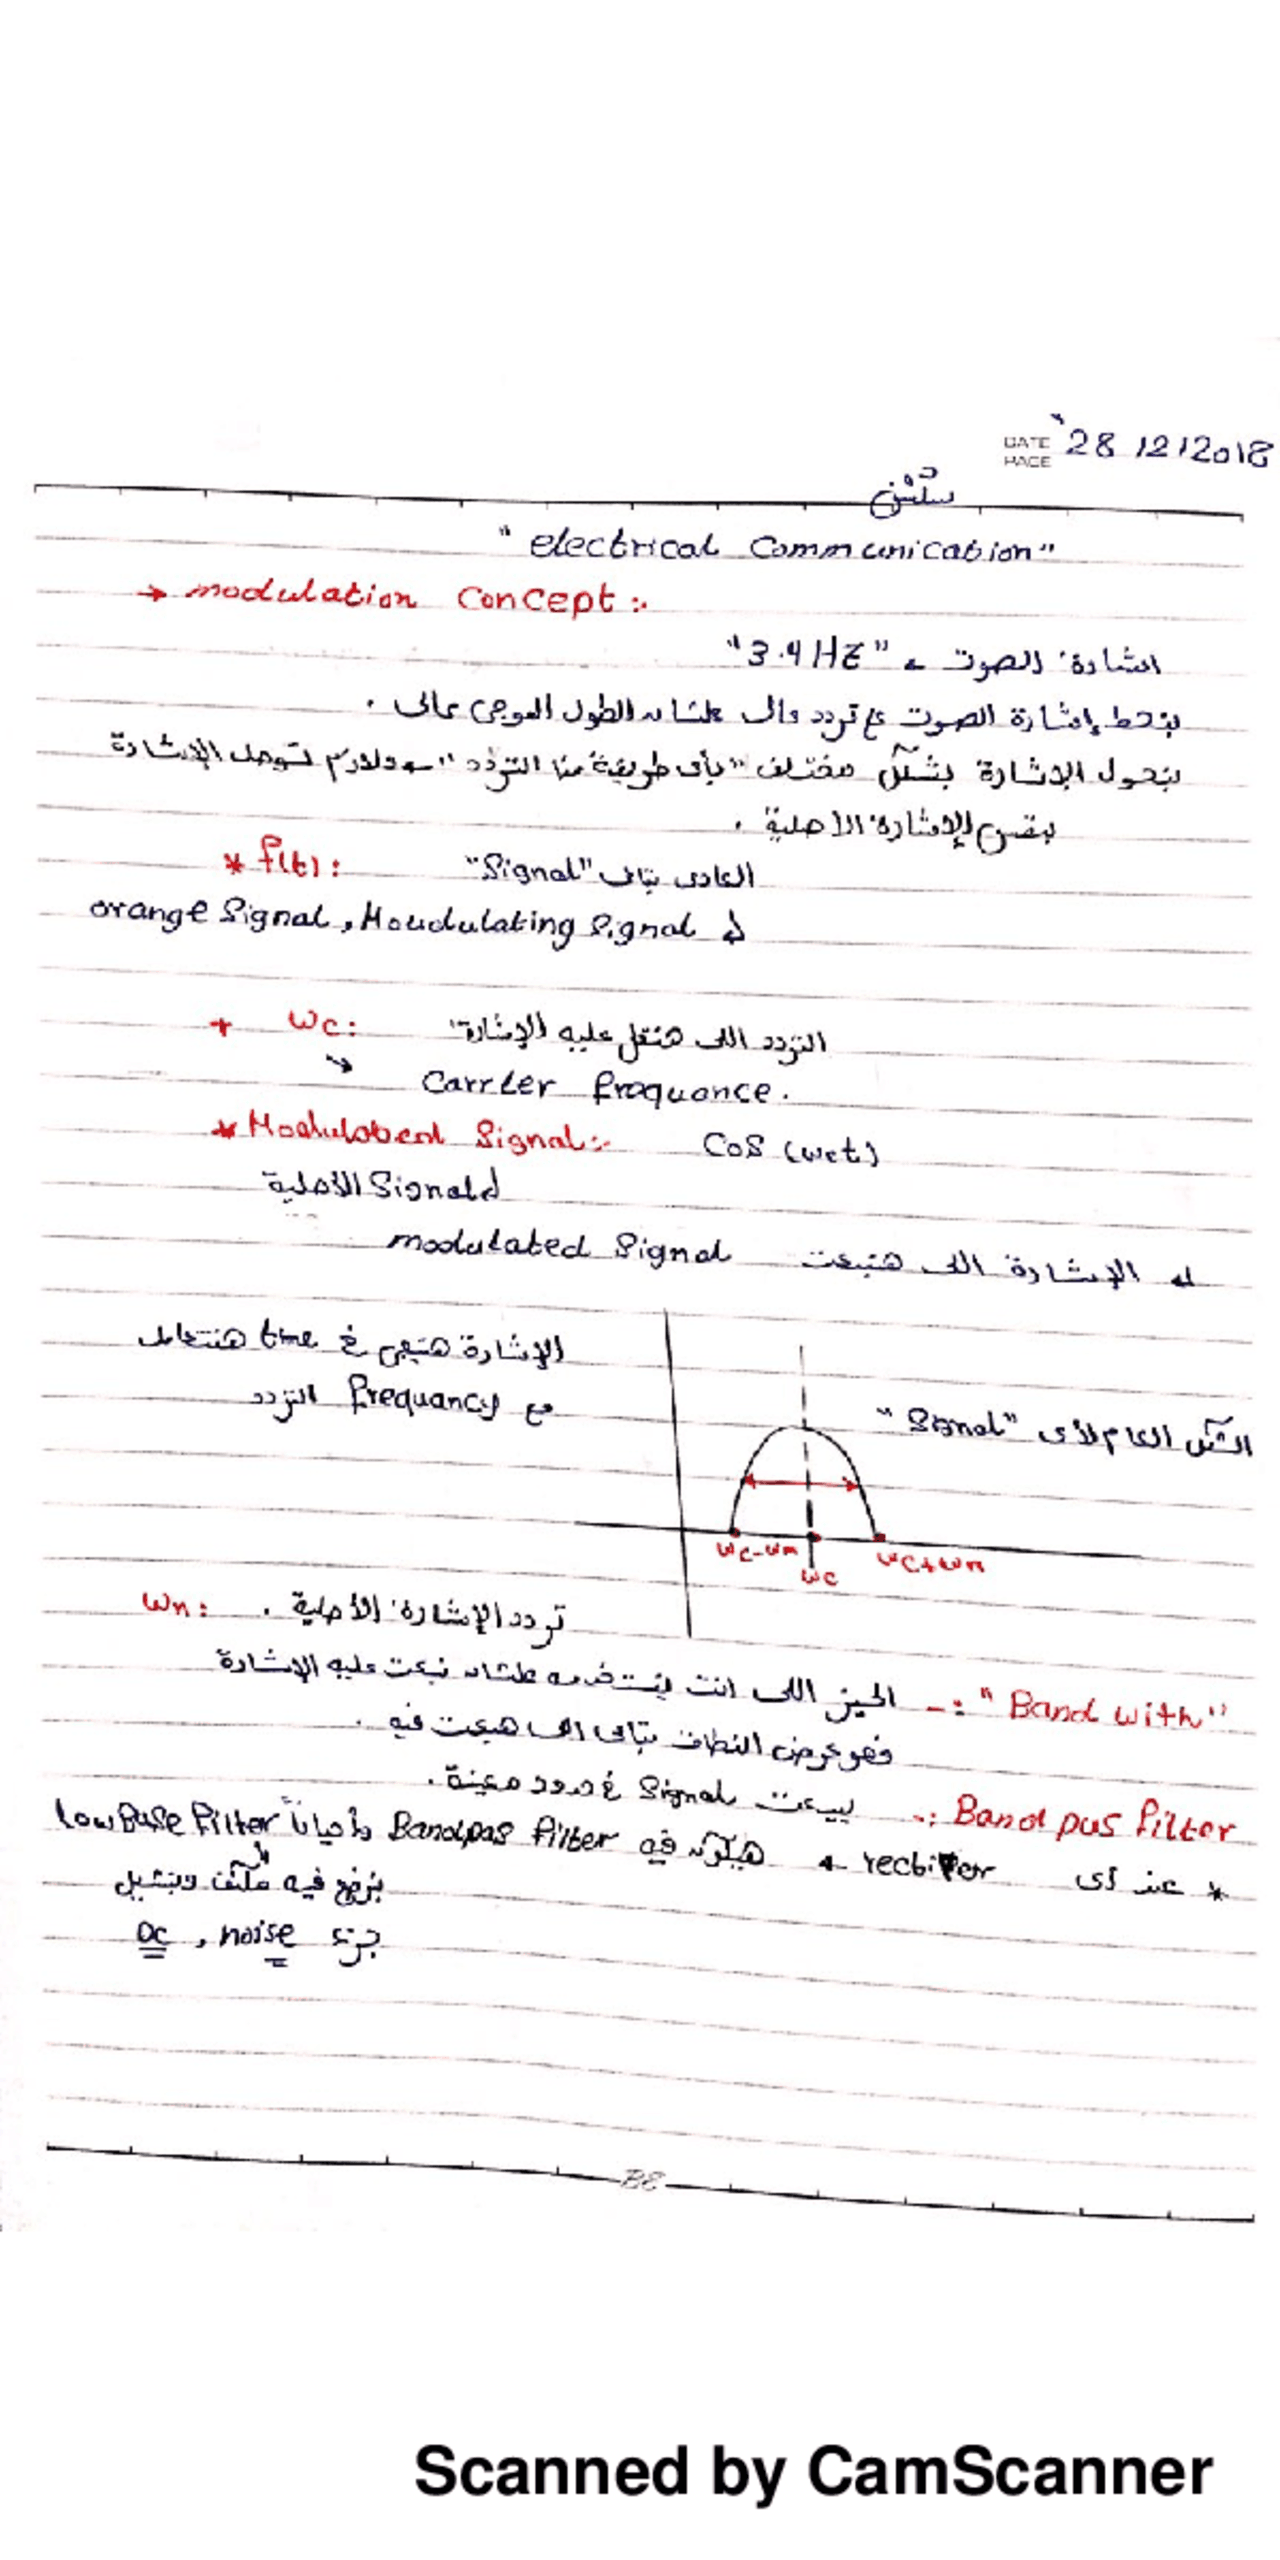 DATE 28 12 12018
PAGE
سكشن
"electrical Communication"
→ modulation Concept :.
اشارة الصوت → "3.4 HZ"
بنحط إشارة الصوت ع تردد عالى علشان الطول الموجى عالى .
بنحول الإشارة بشكل مختلف "بأى طريقة منا التردد" ← ولازم توصل الإشارة
بقرب للإشارة الأصلية .
* f(t) : العادى بتاعى "Signal"
orange Signal , Moudulating Signal
+ wc : التردد اللى هننقل عليه الإشارة
Carrier froquance .
* Modulobed Signal :- Cos (wct)
الأصلية Signal
الإشارة اللى هتبعت modulated Signal
الإشارة هتيجى فى time هنتعامل
مع frequancy التردد
الشكل العام لأى "Signal"
wc-wm
wc
wc+wm
wn : تردد الإشارة الأصلية .
"Band with" :- الحيز اللى انت بتستخدمه علشان تبعت عليه الإشارة
فهو عرض النطاق بتاعى اللى هبعت فيه .
Band pus filter :- بيبعت Signal فى حدود معينة .
* عند أى rectifier هيكون فيه Bandpas filter وأحياناً low Pase Filter
بنوضع فيه مكثف وبنشيل
جزء noise , DC
BE
Scanned by CamScanner